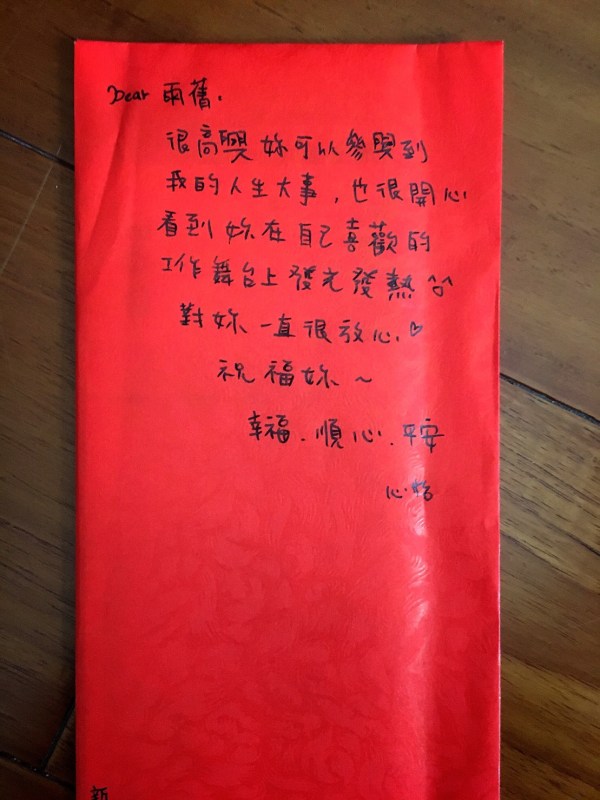 Dear 雨舊.
很高興妳可以參與到
我的人生大事，也很開心
看到妳在自己喜歡的
工作舞台上發光發熱^^
對妳一直很放心.♡
祝福妳～
幸福.順心.平安
心怡
新